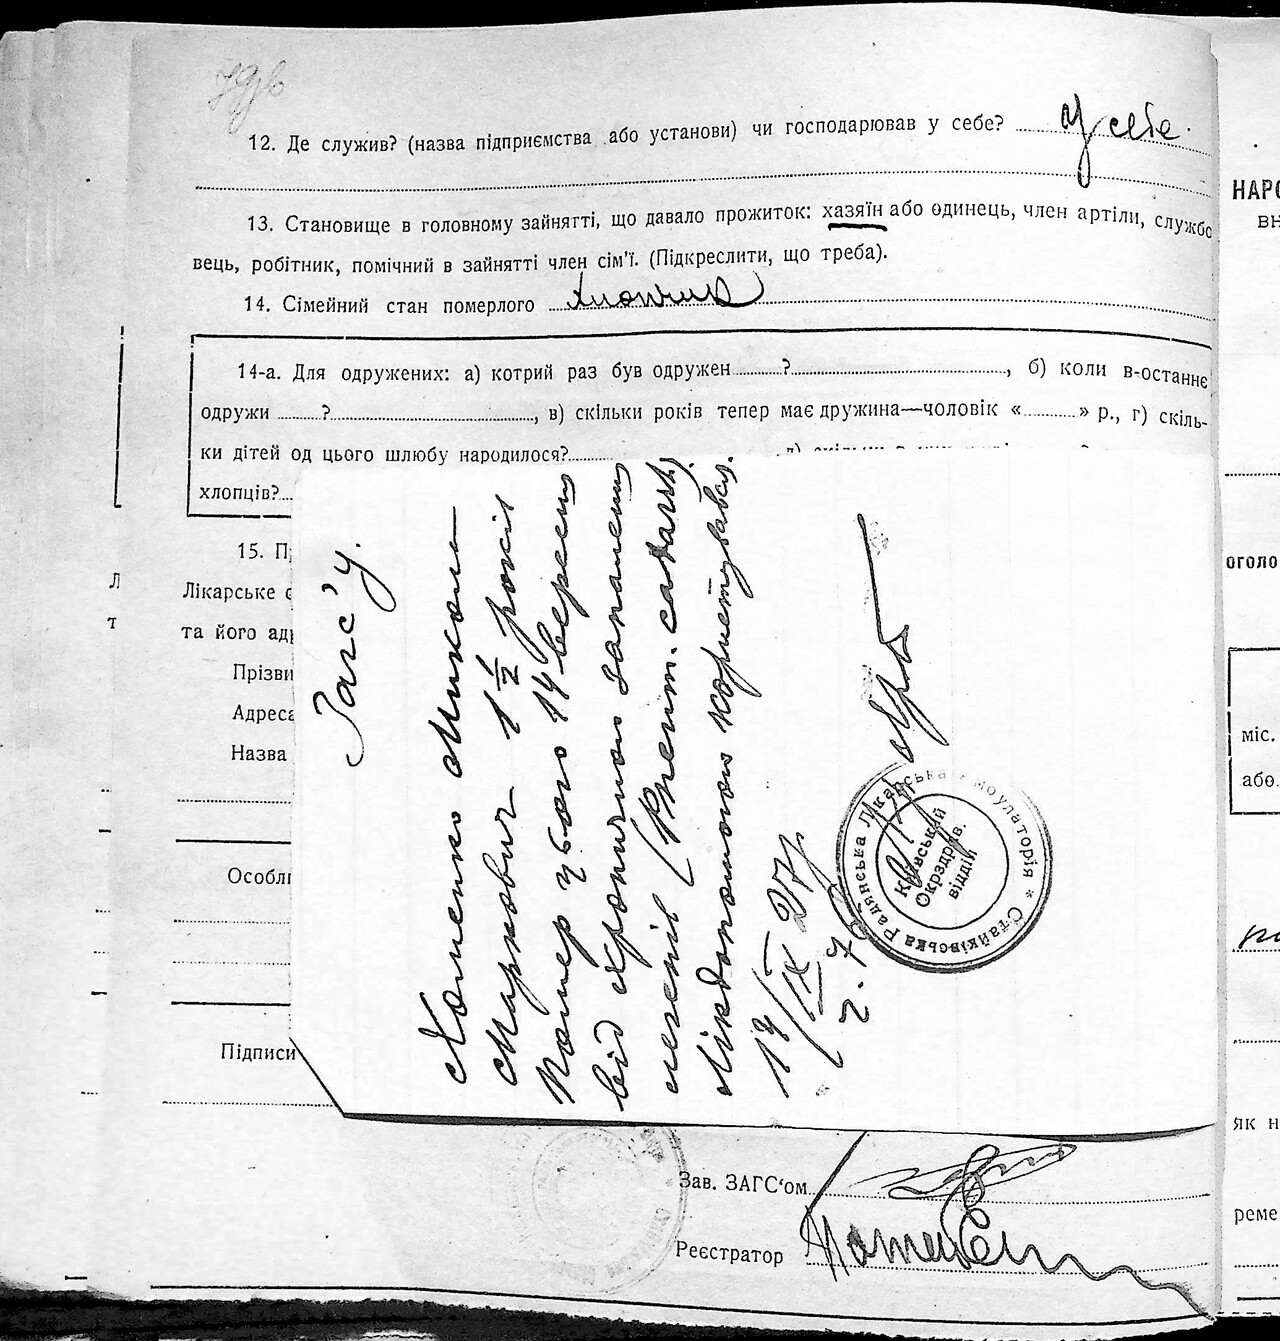 12. Де служив? (назва підприємства або установи) чи господарював у себе? У себе.
13. Становище в головному зайнятті, що давало прожиток: хазяїн або одинець, член артіли, службо
вець, робітник, помічний в зайнятті член сім'ї. (Підкреслити, що треба).
14. Сімейний стан померлого хлопчик
14-а. Для одружених: а) котрий раз був одружен ? , б) коли в-останнє
одружи ? , в) скільки років тепер має дружина—чоловік « » р., г) скіль-
ки дітей од цього шлюбу народилося?
хлопців?
15. П
Лікарське
та його ад
Прізви
Адреса
Назва
Особли
Підписи
Загс'у.
Хоменко Микола
Маркович 1 1/2 років
помер цього 14 вересня
від хронічного запалення
легенів
Лікдопомогою користувався.
14/IX 27р
Стайківська Радянська Лікарська Амбулаторія *
Київський
Окрздрив.
віддій
Зав. ЗАГС'ом
Реєстратор
НАРО
ВН
оголо
міс.
або
як н
реме
Л
т